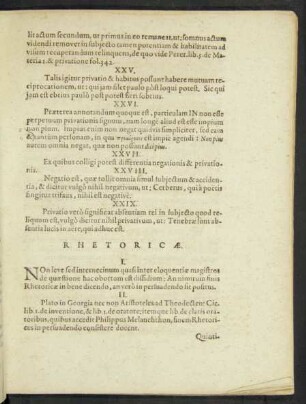 lit actum secundum, ut primus in eo remune it, ut; somnus actum
videndi removet in subjecto tamen potentiam & habilitatem ad
visum recuperandum relinquens, de quo vide Peret. lib. 5. de Ma-
teria c. & privatione fol. 342.
XXV.
Talis igitur privatio & habitus possunt habere mutuum re-
ciprocationem, ut: qui jam silet paulò pòst loqui potest. Sic qui
jam est ebrius paulò post potest fieri sobrius.
XXVI.
Præterea annotandum quoque est, particulam IN non esse
perpetuum privationis signum, nam longè aliud est esse impium
non pium. Impius enim non negat quid simpliciter, sed
autem omnia negat, quæ non possunt
XXVII.
Ex quibus colligi potest differentia negationis & privatio-
nis.
XXVIII.
Negatio est, quæ tollit omnia simul subjectum & acciden-
tia, & dicitur vulgò nihil negativum, ut; Cerberus, quia poëtis
fingitur nihil est negativè.
XXIX.
Privatio verò significat absentiam rei in subjecto quod re-
liquum est, vulgò dicitur nihil privativum, ut: Tenebræ sunt ab-
sentia lucis in aëre, qui adhuc est.
RHETORICÆ.
I.
NOn leve sed internecinum quasi inter eloquentiæ magistros
de quæstione hac obortum est dissidium: An nimirum finis
Rhetoricæ in bene dicendo, an verò in persuadendo sit positus.
II.
Plato in Georgia nec non Aristoteles ad Theodecten: Cic.
lib. 1. de inventione, & lib. 1. de oratore: itemque lib. de claris ora-
toribus, quibus accedit Philippus Melanchthon, finem Rhetori-
ces in persuadendo consistere docent.